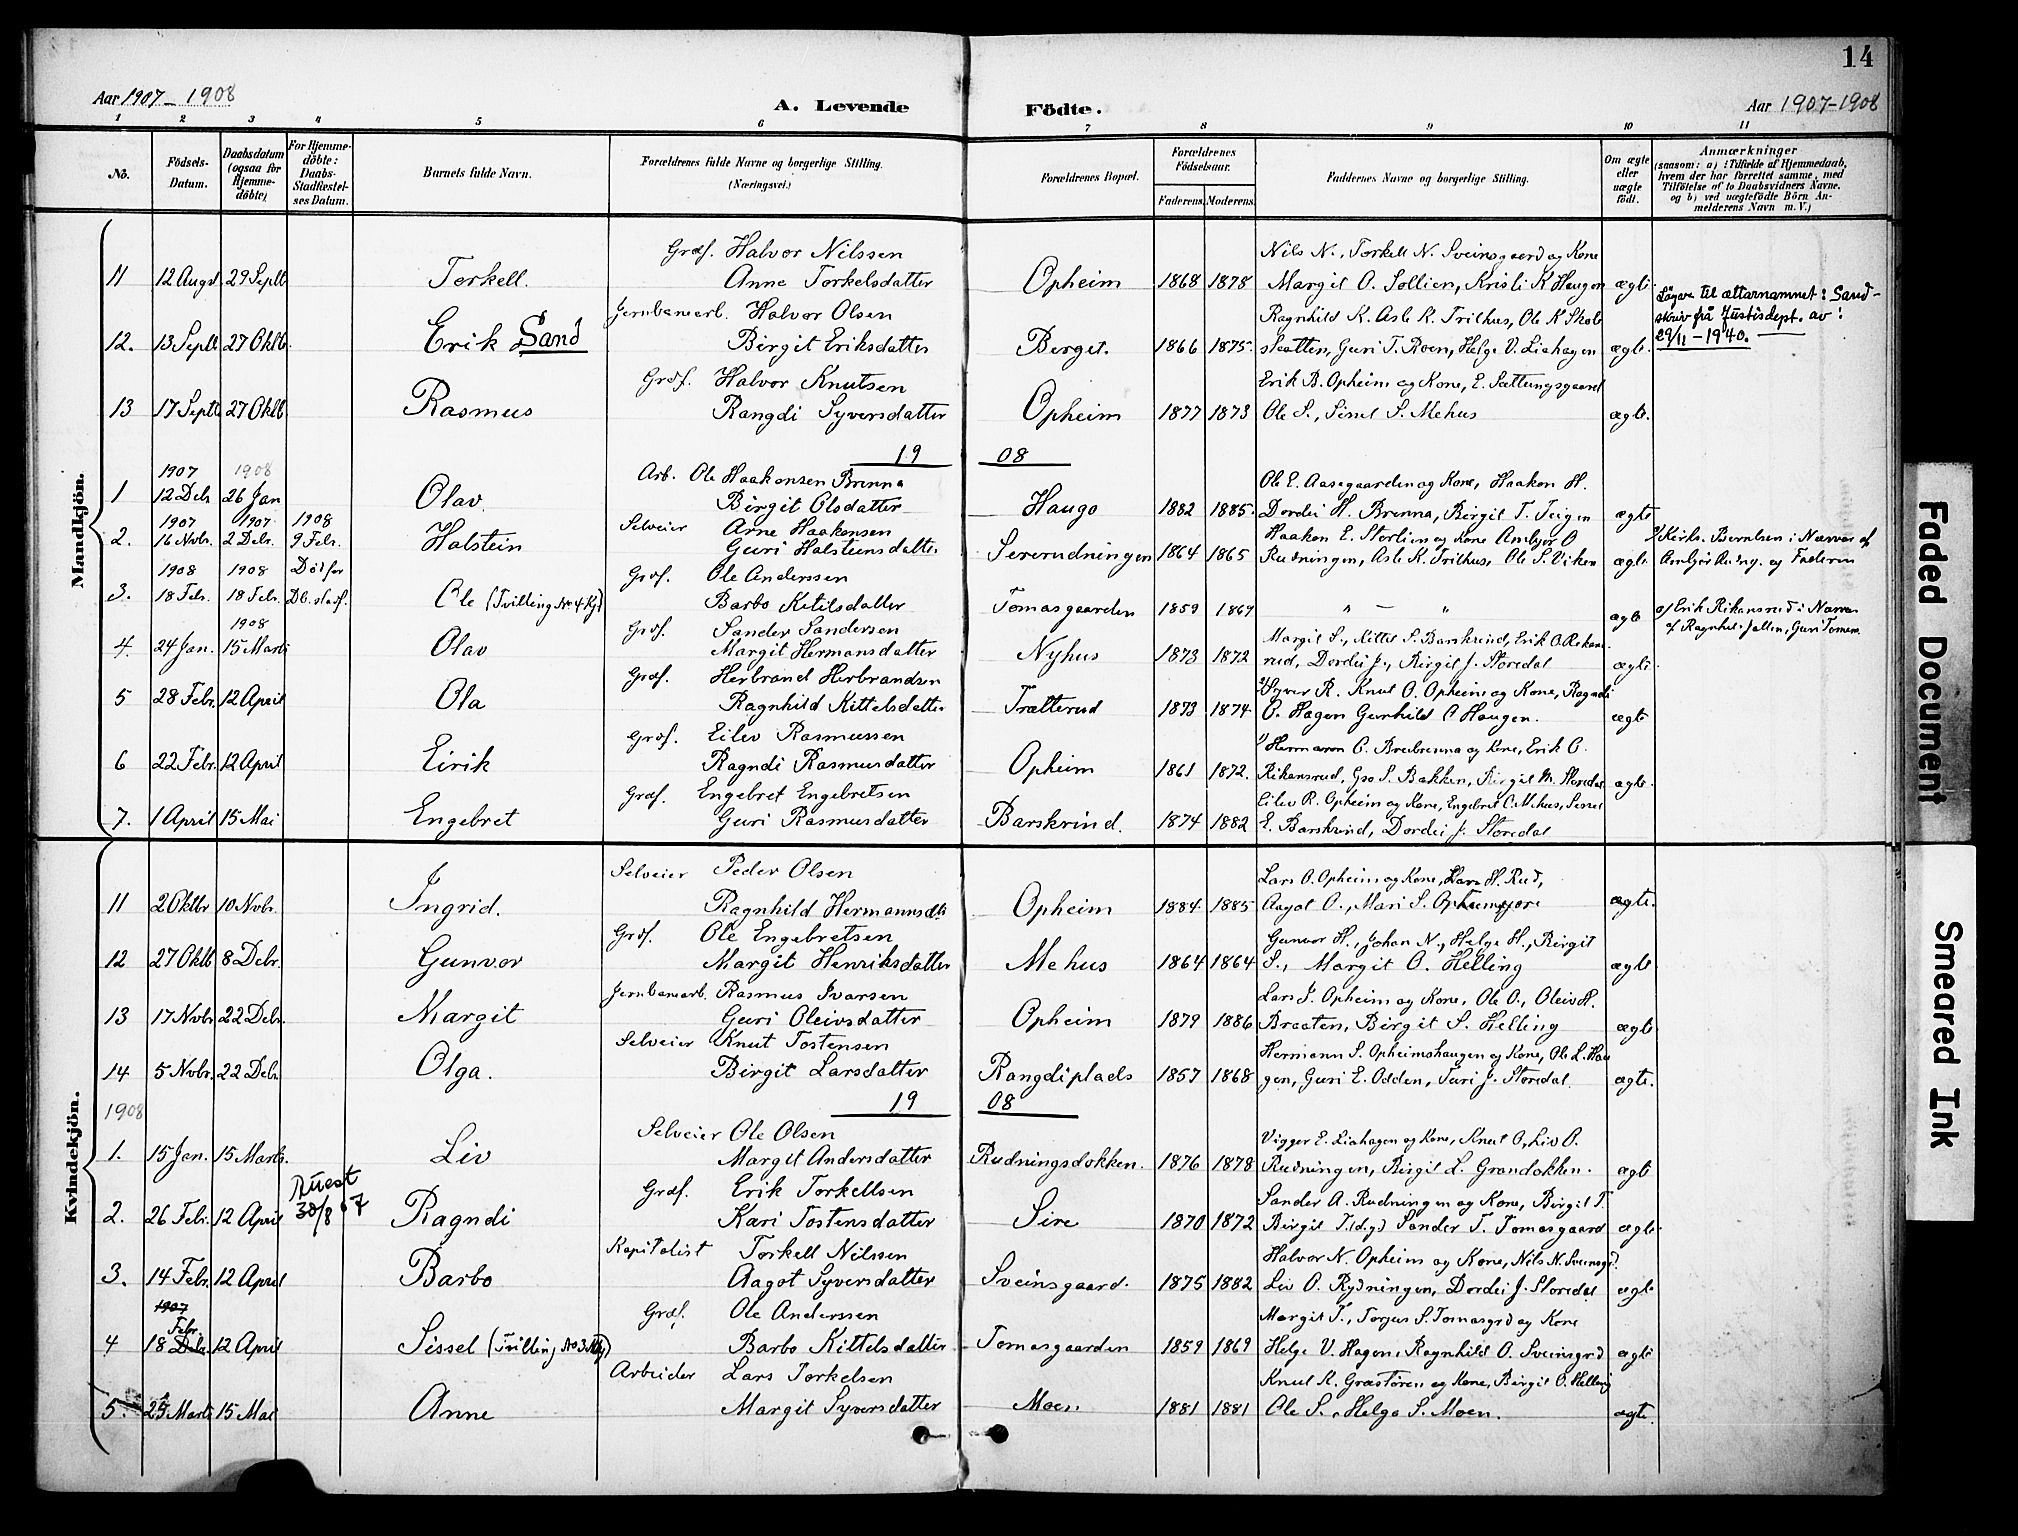 14
Aar 1907 - 1908
A. Levende Födte.
Aar 1907-1908
1 2 3 4 5 6 7 8 9 10 11
No.
Födsels-Datum.
Daabsdatum (ogsaa for Hjemme-döbte)
For Hjemme-döbte: Daabs-Stadfæstel-ses Datum.
Barnets fulde Navn.
Forældrenes fulde Navne og borgerlige Stilling.
(Næringsvei.)
Forældrenes Bopæl.
Forældrenes Födselsaar.
Faderens Moderens
Faddernes Navne og borgerlige Stilling.
Om ægte eller uægte födt.
Anmærkninger
(saasom: a) i Tilfælde af Hjemmedaab,
hvem der har forrettet samme, med
Tilföielse af to Daabsvidners Navne.
og b) ved uægtefödte Börn An-
melderens Navn m. V.)
Mandkjön.
Grdf. Halvor Nilssen Nils N., Torkell N. Sveinsgaard og Kone
11 12 Augst 29 Septb Torkell. Anne Torkelsdatter Opheim 1868 1878 Margit O. Sollien, Kristi K Haugen ægte
Jernbanearb. Halvor Olsen Ragnhild K. Asle K. Trilhus, Ole K Skole
12. 13 Septb 27 Oktb. Erik Sand Birgit Eriksdatter Berget. 1866 1875. skatten, Guri T. Roen, Helge V. Liahagen ægte.
Løyve til ættarnamnet: Sand-
skriv frå Justisdept. av:
29/11 - 1940.
Grdf. Halvor Knutsen Erik B. Opheim og Kone, E. Sættungsgaard
13 17 Septb 27 Oktb Rasmus Rangdi Syversdatter Opheim 1877 1873 Ole S., Sinet S. Mehus ægte.
19 08
1907 1908 Arb. Ole Haakonsen Brenna Ole E. Aasegaarden og Kone, Haakon H.
1 12 Debr 26 Jan Olav Birgit Olsdatter Haugo 1882 1885. Dordei H. Brenna, Birgit T. Teigen ægte
1907 1907 1908 Selveier Arne Haakonsen Haakon E. Storlien og Kone Ambjør O
2. 16 Novbr. 2 Debr. 9 Febr. Halstein Guri Halsteinsdatter Sevrerudningen 1864 1865 Rudningen, Asle K. Trilhus, Ole S. Viken ægte
Kirks. Berntsen i Nærvær af
Ambjør Rudng. og Faderen
1908 1908 Død før Grdf. Ole Anderssen
3. 18 Febr. 18 Febr. Db. stadf. Ole (Tvilling No 4 Kj) Barbo Kittilsdatter Tomasgaarden 1859 1867 " - " ægte
Erik Rikansrud i Nærvær
af Ragnhil Jallin, Guri Tomen
1908 Grdf. Sander Sandersen Margit S., Kittel S. Barskrind, Erik O. Rikans-
4. 24 Jan. 15 Marts Olav Margit Hermansdatter Nyhus 1873 1872 rud, Dordei J., Birgit J. Storedal ægte.
Grdf. Herbrand Herbrandsen Syver R. Knut O. Opheim og Kone, Ragndi
5 28 Febr. 12 April Ola Ragnhild Kittelsdatter Trætterud 1873 1874 O. Hagen Gunhild O Haugen. ægte
Grdf. Eilev Rasmussen Hermann O. Breibrenna og Kone, Erik O.
6 22 Febr. 12 April Eirik Ragndi Rasmusdatter Opheim 1861 1872. Rikansrud, Gro S. Bakken, Birgit M. Storedal ægte.
Grdf. Engebret Engebretsen Eilev R. Opheim og Kone, Engebret O. Mehus, Senet
7. 1 April 15 Mai Engebret Guri Rasmusdatter Barskrind. 1874 1882 E. Barskrind, Dordei J. Storedal
Kvindekjön.
Selveier Peder Olsen Lars O. Opheim og Kone, Lars H. Rud,
11 2 Oktbr 10 Novbr. Ingrid. Ragnhild Hermannsdtr Opheim 1884 1885 Aagot O., Mari S. Opheimsjore ægte.
Grdf. Ole Engebretsen Gunvor H., Johan N., Helge H., Birgit
12 27 Oktb 8 Debr. Gunvor Margit Henriksdatter Mehus 1864 1864 S., Margit O. Helling ægte
Jernbanearb. Rasmus Ivarsen Lars J. Opheim og Kone, Ole O., Oleiv H.
13 17 Novbr 22 Debr. Margit Guri Oleivsdatter Opheim 1879 1886 Braaten, Birgit S. Helling ægte
Selveier Knut Tostensen Hermann S. Opheimshaugen og Kone, Ole L. Hau
14 5 Novbr. 22 Debr Olga. Birgit Larsdatter Rangdiplads 1857 1868 gen, Guri E. Odden, Turi J. Storedal. ægte.
1908 19 08
Selveier Ole Olsen Vigger E. Liahagen og Kone, Knut O, Liv O.
1. 15 Jan. 15 Marts. Liv Margit Andersdatter Rudningsdokken. 1876 1878 Rudningen, Birgit L. Grandokken. ægte
Attest
30/8 67
Grdf. Erik Torkellsen Sander A. Rudningen og Kone, Birgit T.
2. 26 Febr. 12 April Ragndi Kari Tostensdatter Sire 1870 1872 Birgit T. (d.y.) Sander T. Tomasgaard ægte
Kapitalist Torkell Nilssen Halvor N. Opheim og Kone, Nils N. Sveinsgrd.
3. 14 Febr. 12 April Barbo Aagot Syversdatter Sveinsgaard. 1875 1882 Liv O. Rydningen, Dordei J. Storedal ægte
1907 Febr. Grdf. Ole Anderssen Margit T., Torjus S. Tomasgrd og Kone
4 18 Debr 12 April Sissel (Tvilling No 3 Mkj) Barbo Kittelsdatter Tomasgaarden 1859 1869 Helge V. Hagen, Ragnhild O. Sveinsgrd ægte
Arbeider Lars Torkelsen Knut K. Græstøren og Kone, Birgit O. Helling
5. 25 Marts 15 Mai Anne Margit Syversdatter Moen 1881 1881 Ole S., Helga S. Moen. ægte.
Faded Document
Smeared Ink